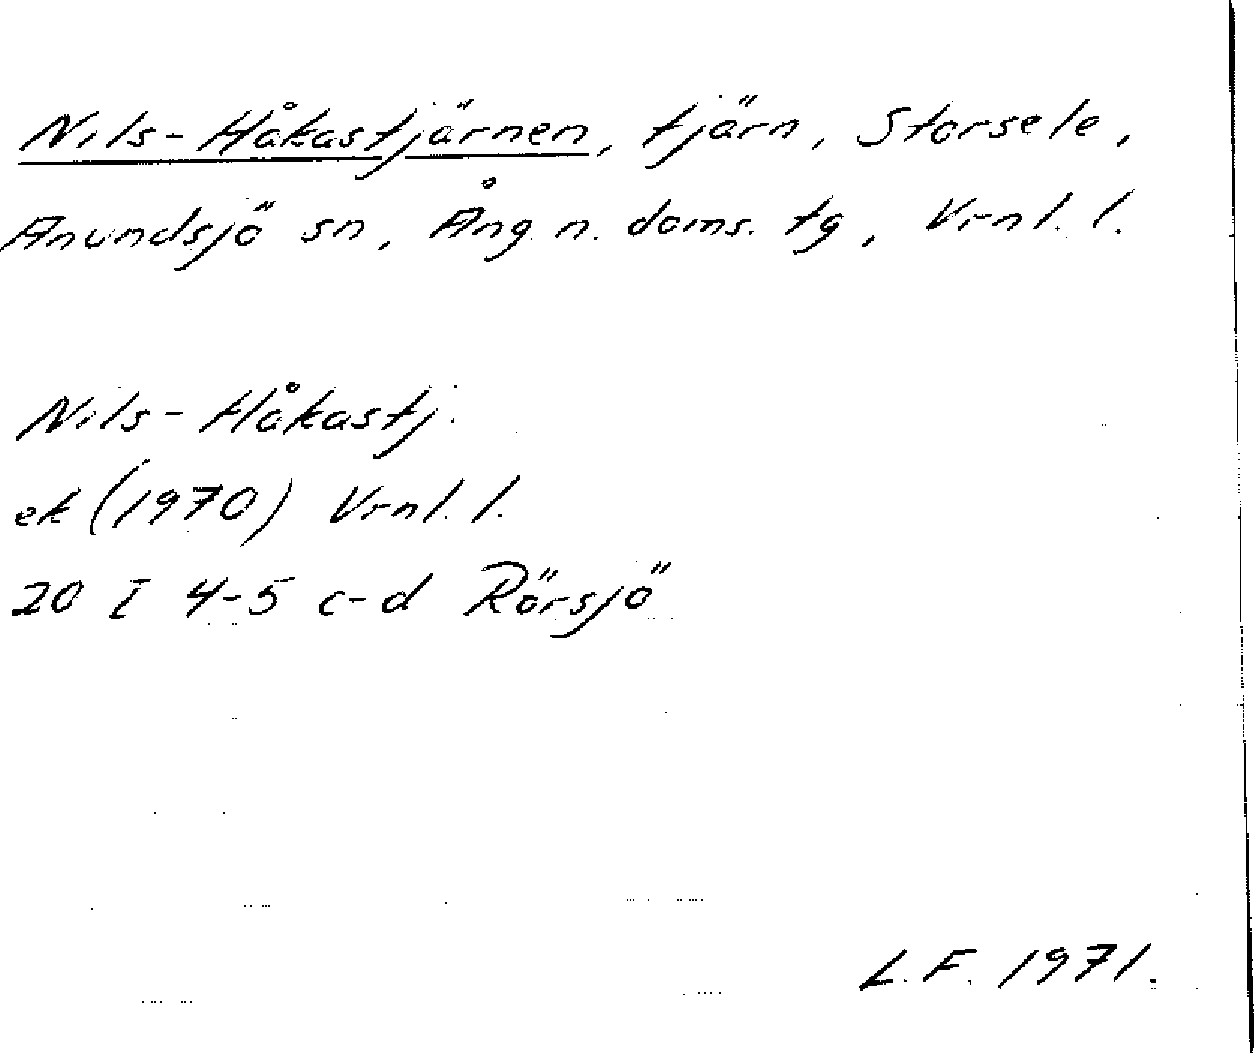 Nils-Håkastjärnen, tjärn, Storsele,
Anundsjö sn, Ång n. doms. tg, Vrnl. l.
Nils-Håkastj.
ek (1970) Vrnl. l.
20 I 4-5 c-d Rörsjö
L.F. 1971.